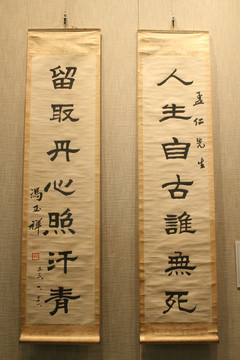 孟仁先生
人生自古誰無死
留取丹心照汗青
馮玉祥